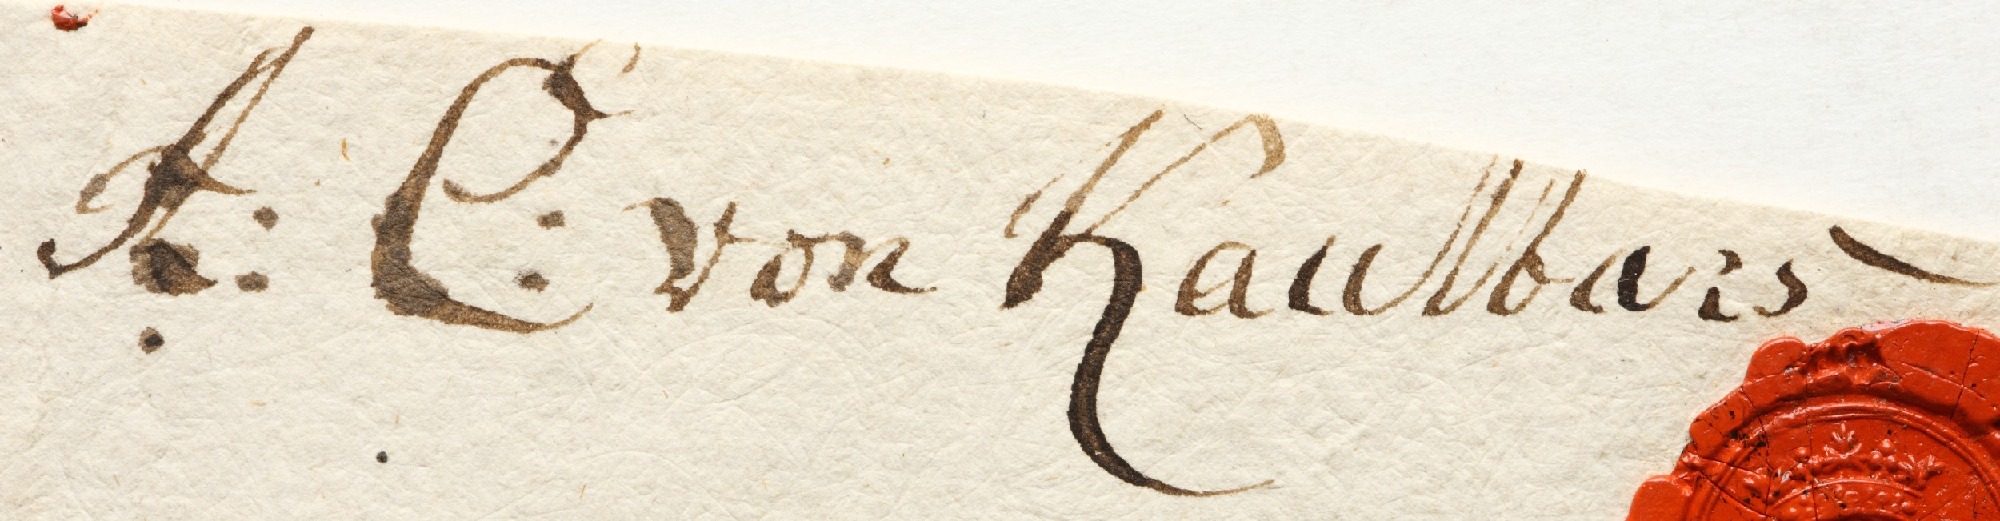 A: C: von Kaulbars